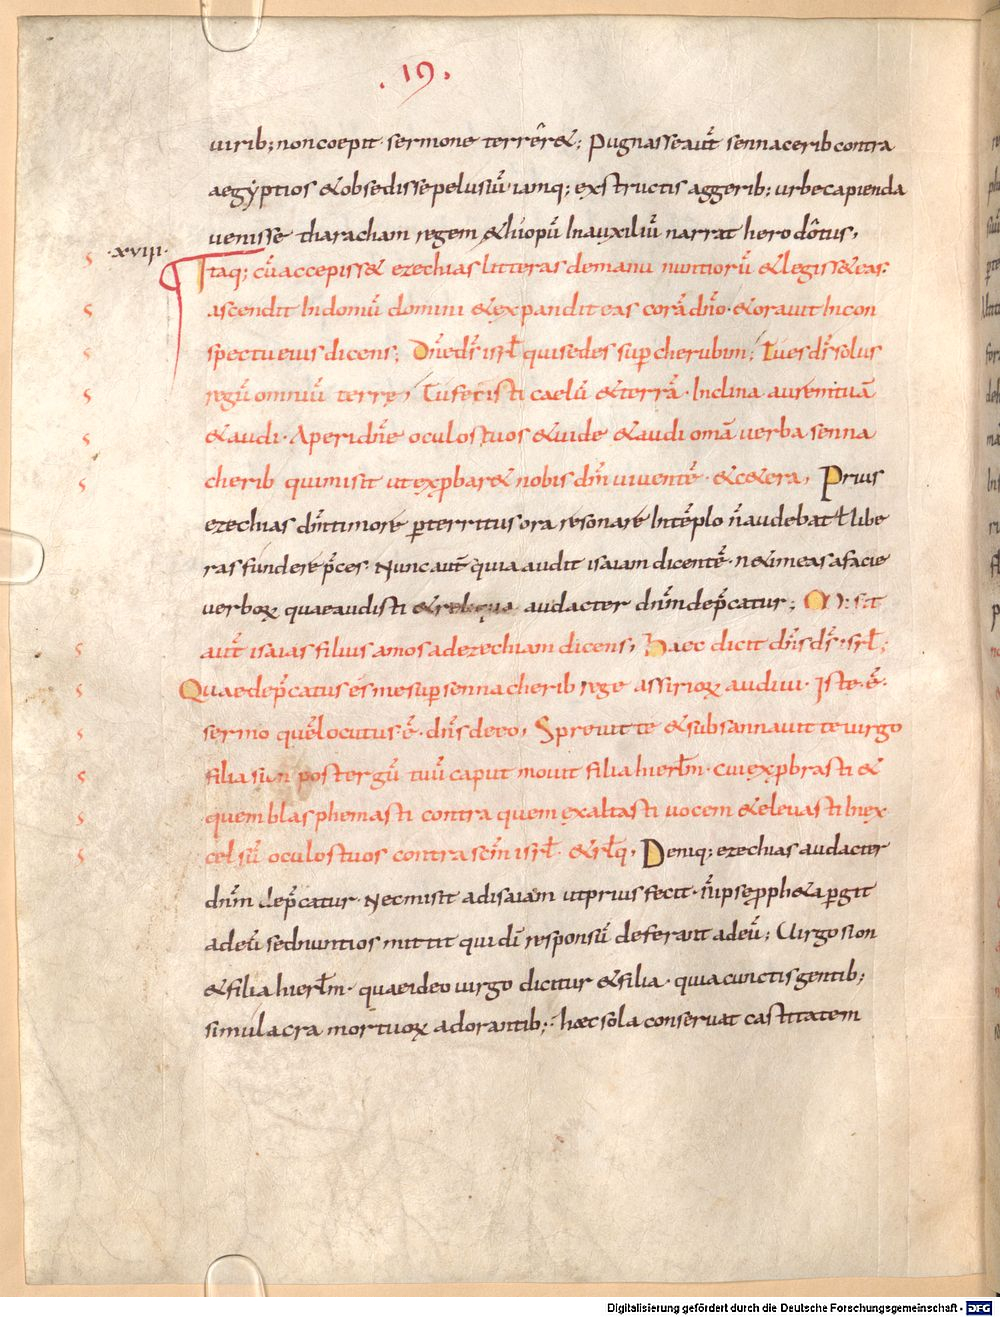 .19.
uirib; non coepit sermone terrêr&; Pugnasse aut̄ sennacerib contra
aegẏptios & obsedisse pelusiū iamq; exstructis aggerib; urbe capienda
uenisse tharacham regem &hiopū In auxiliū narrat herodôtus,
·xviii· Itaq; cū accepiss& ezechias litteras de manu nuntiorū & legiss& eas.
ascendit In domū domini & expandit eas corā dn̄o · & orauit In con
spectu eius dicens; Dn̄e ds̄ isrl̄ qui sedes sup cherubim; Tu es ds̄ solus
regū omniū terrę, Tu fecisti caelū & terrā · Inclina aurem tuā
& audi · Aperi dn̄e oculos tuos & uide & audi om̄a uerba senna
cherib qui misit ut exp̱bar& nobis dm̄ uiuentē · & c&era, Prius
ezechias dn̄i timore p̱territus ora resonare In tēplo n̄ audebat ł libe
ras fundere p̄ces. Nunc aut̄ quia audit isaiam dicentē · ne timeas a facie
uerboꝝ quae audisti & reliqua audacter dn̄m dep̄catur; Misit
aut̄ isaias filius amos ad ezechiam dicens, Haec dicit dn̄s ds̄ isrl̄;
Quae dep̄catus es me sup sennacherib rege assirioꝝ audiui · Iste · ē ·
sermo quē locutus · ē · dn̄s de eo, Spreuit te & subsannauit te uirgo
filia sion post tergū tuū caput mouit filia hierl̄m · cui exp̱brasti &
quem blasphemasti contra quem exaltasti uocem & eleuasti In ex
celsū oculos tuos contra scm̄ isrl̄ · & rl̄q, Deniq; ezechias audacter
dn̄m dep̄catur · Nec misit ad isaiam ut prius fecit · n̄ ipse pph&a p̱git
ad eū sed nuntios mittit qui dī responsū deferant ad eū; Uirgo sion
& filia hierl̄m · quae ideo uirgo dicitur & filia · quia cunctis gentib;
simulacra mortuoꝝ adorantib; · hęc sola conseruat castitatem
Digitalisierung gefördert durch die Deutsche Forschungsgemeinschaft - DFG